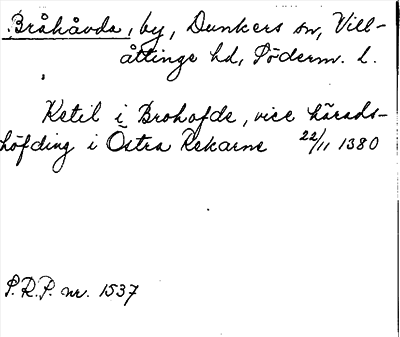 Bråhåvda, by, Dunkers sn, Vill-
åttinge hd, Söderm. l.
Ketil i Brohofde, vice härads-
höfding i Östra Rekarne 22/11 1380
S.R.P. nr. 1537